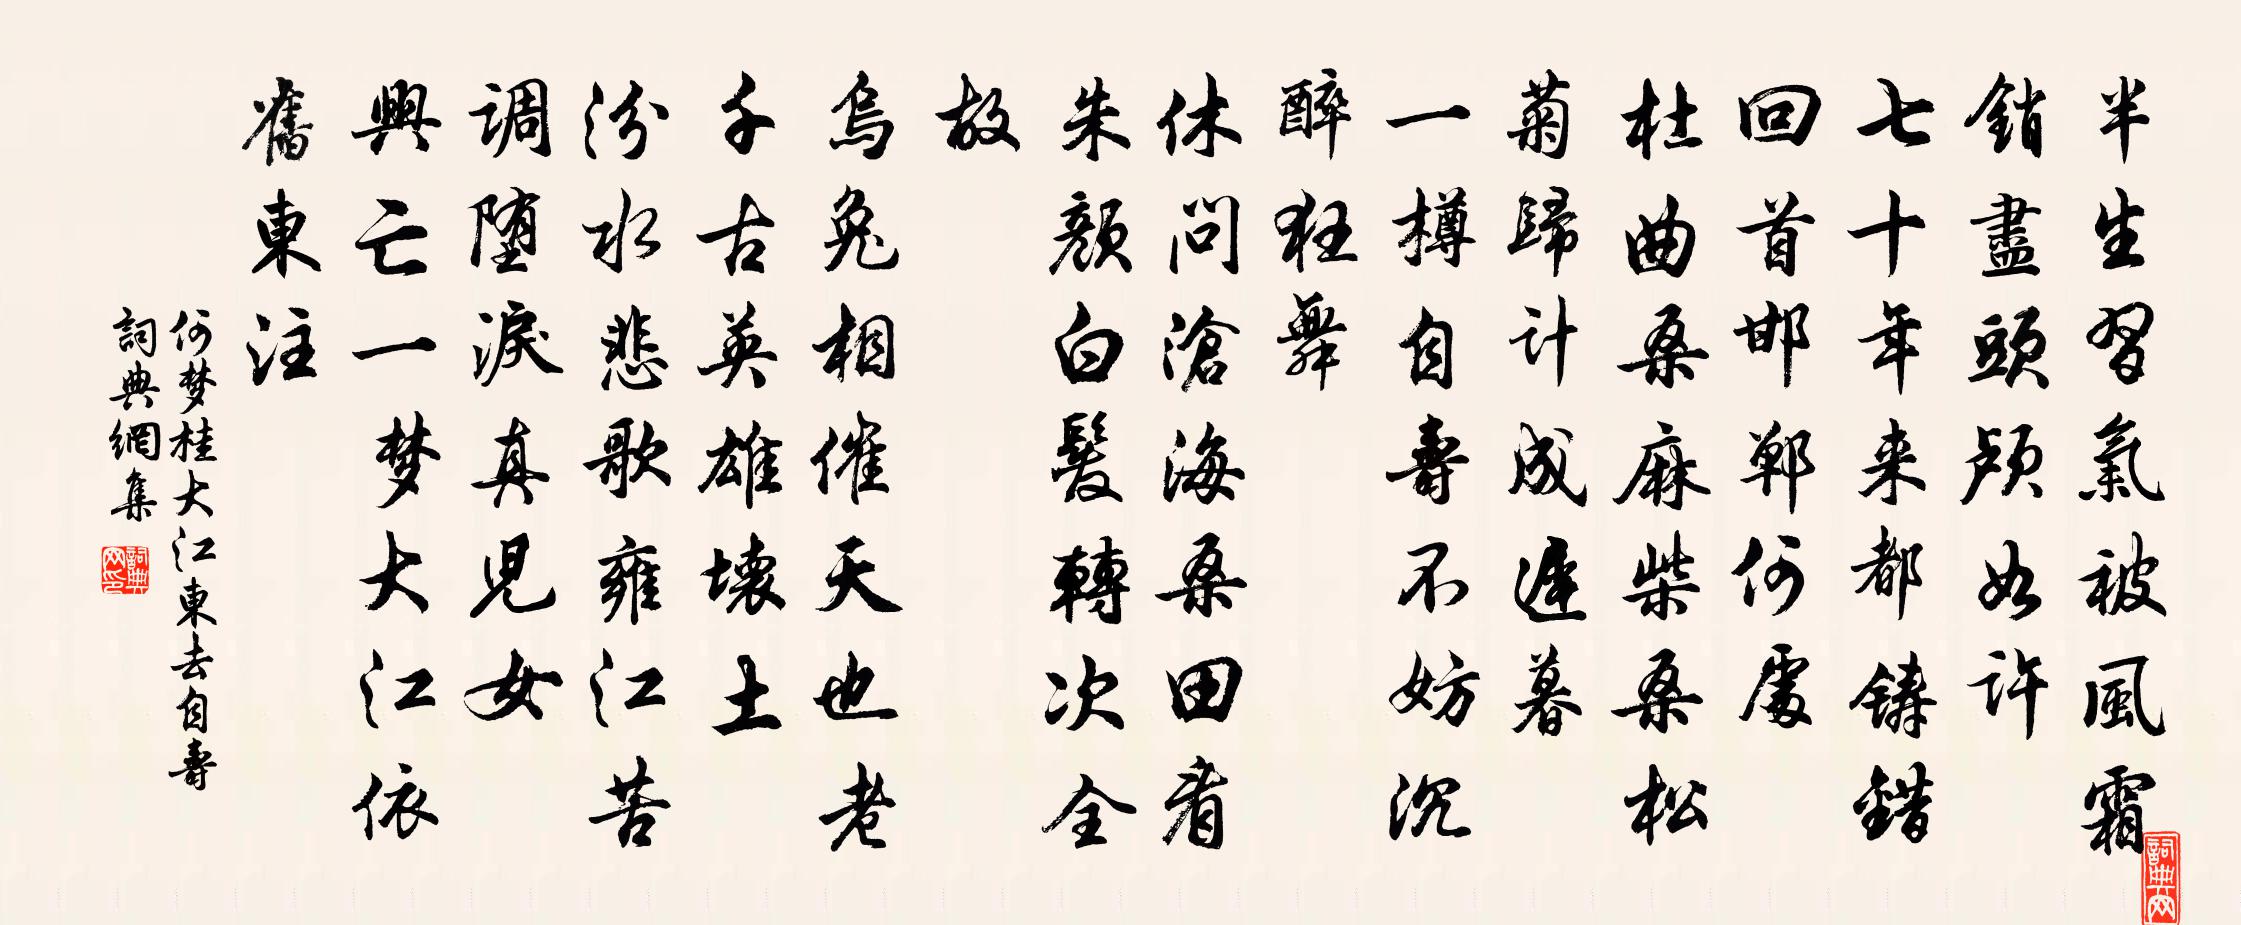 半生習氣被風霜
銷盡頭顱如许
七十年来都鋳錯
回首邯鄲何處
杜曲桑麻柴桑松
菊歸计成遲暮
一樽自壽不妨沉
醉狂舞
休问滄海桑田看
朱顏白髪轉次全
故
烏兔相催天也老
千古英雄壊土
汾水悲歌雍江苦
调堕淚真児女
興亡一梦大江依
舊東注
何梦桂大江東去自壽
詞典網集
詞典网印
詞典网